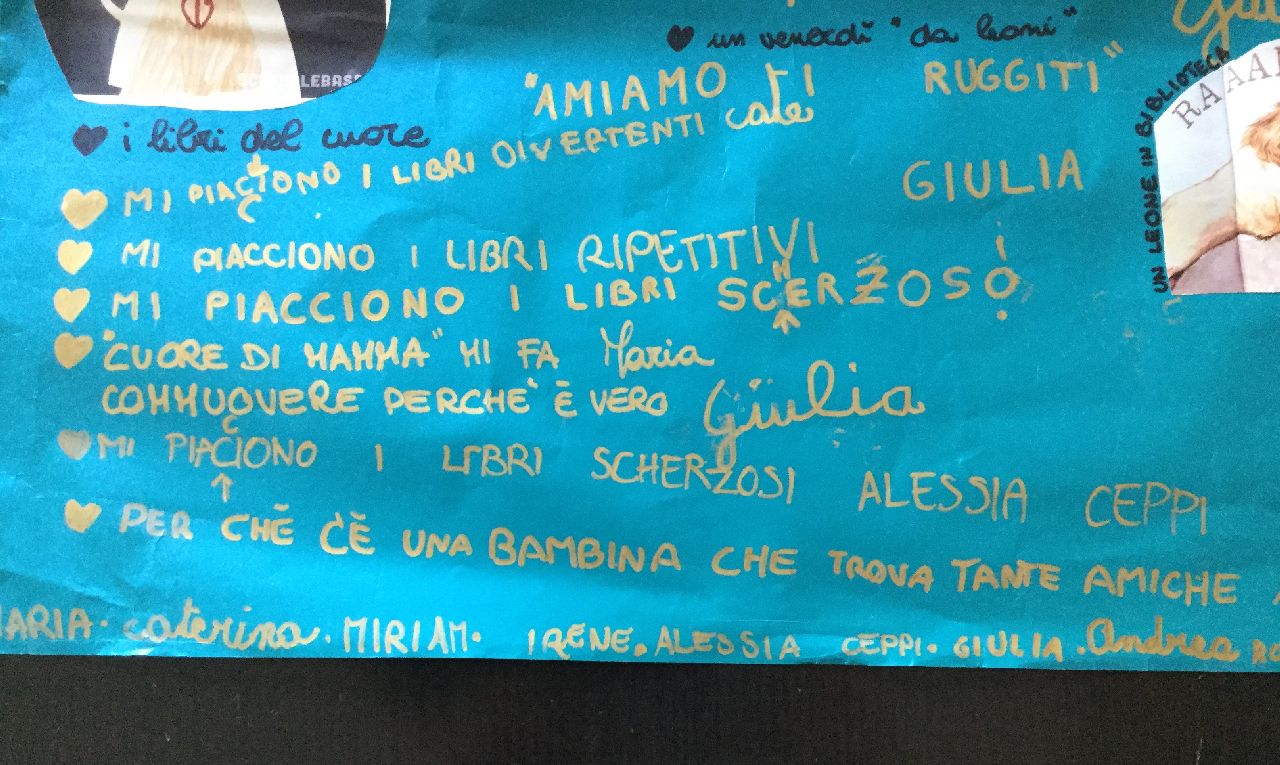 un venerdì "da leoni"
"AMIAMO ti RUGGITI"
i libri del cuore
MI PIACCIONO I LIBRI DIVERTENTI cate
GIULIA
MI PIACCIONO I LIBRI RIPETITIVI
MI PIACCIONO I LIBRI SCHERZOSi
"CUORE DI MAMMA" MI FA Maria
COMMUOVERE PERCHE' È VERO Giulia
MI PIACCIONO I LIBRI SCHERZOSI ALESSIA CEPPI
PER CHĒ C'È UNA BAMBINA CHE TROVA TANTE AMICHE
MARIA. caterina. MIRIAM. IRENE. ALESSIA CEPPI. GIULIA. Andrea
UN LEONE IN BIBLIOTECA